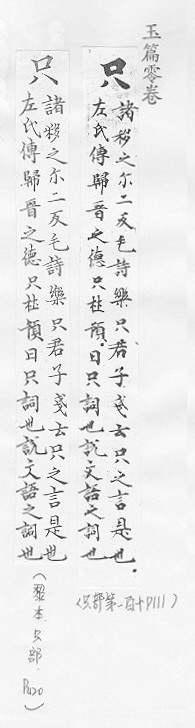 玉篇零卷
只
諸移之尒二反毛詩樂只君子戔云只之言是也
左氏傳歸晋之德只杜預曰只詞也說文語之詞也
(只部第一百十 P111)
只
諸移之尒二反毛詩樂只君子戔云只之言是也
左氏傳歸晋之德只杜預曰只詞也說文語之詞也
(黎本.只部.